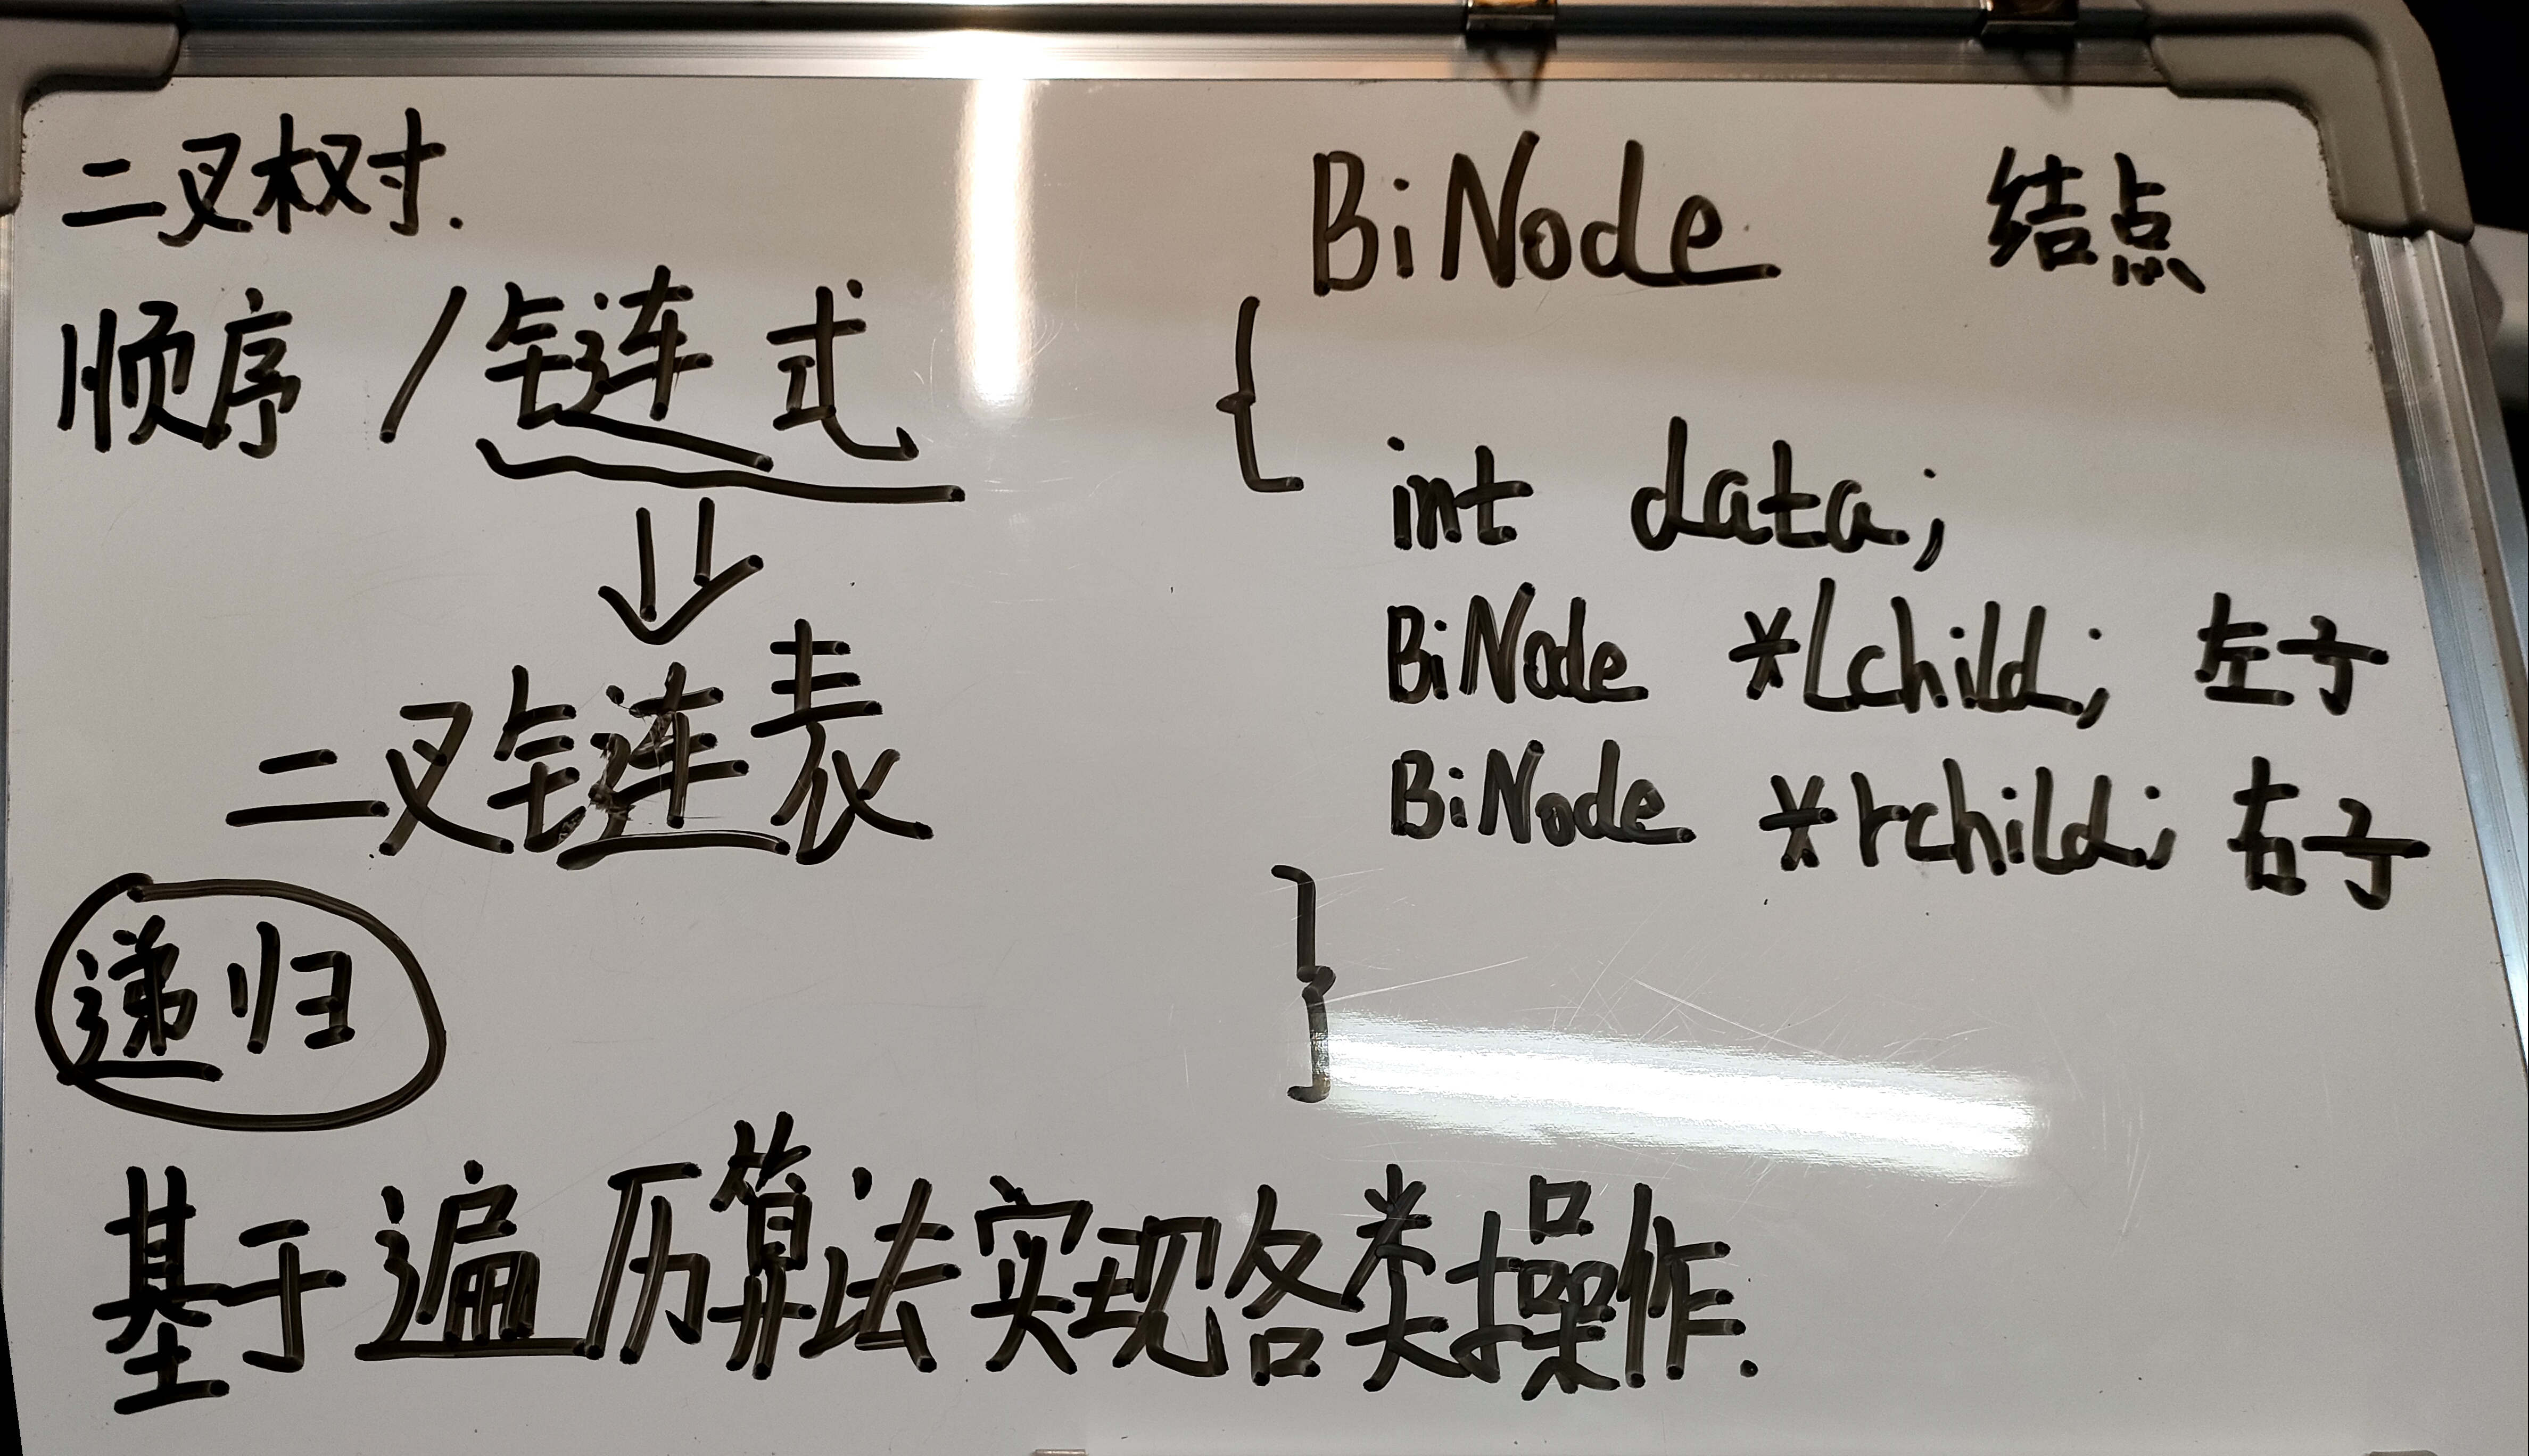 二叉树.
顺序 / 链式
二叉链表
递归
基于遍历算法实现各类操作.
BiNode 结点
{
int data;
BiNode *Lchild; 左子
BiNode *rchild; 右子
}